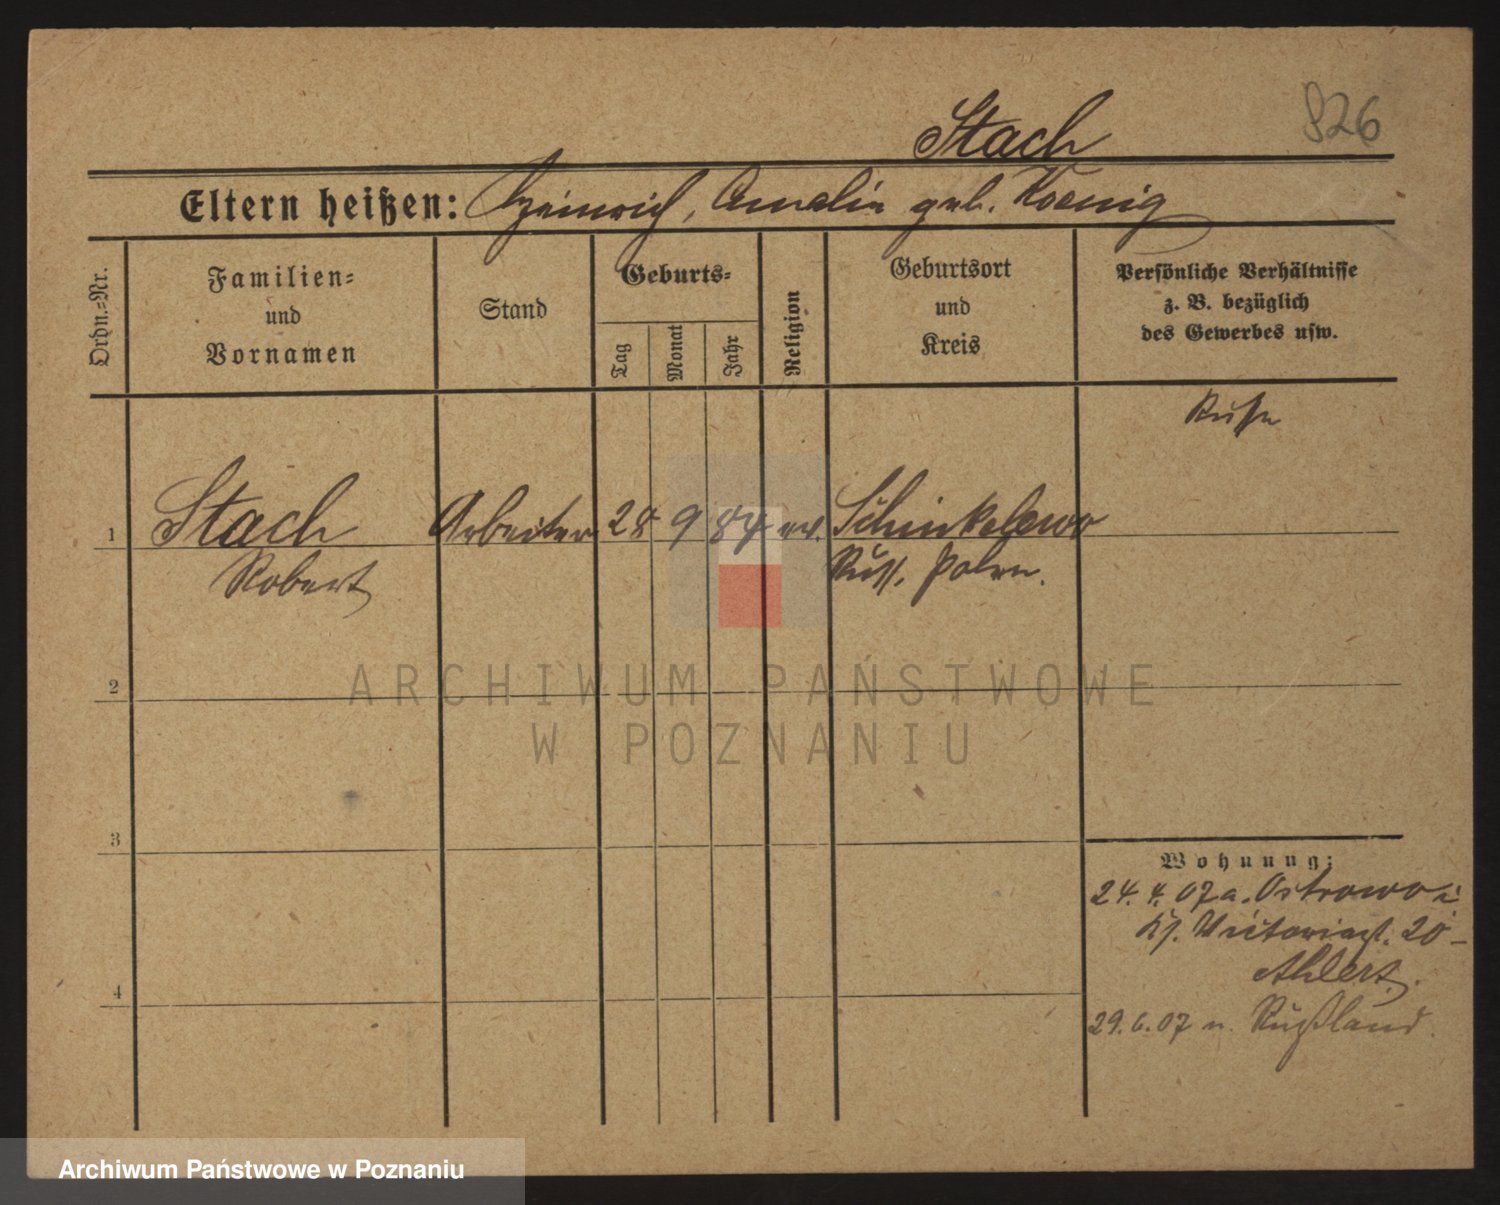 826
Stach
Eltern heißen: Heinrich, Amalie geb. Koenig
Ordn.-Nr.
Familien-
und
Vornamen
Stand
Geburts-
Tag
Monat
Jahr
Religion
Geburtsort
und
Kreis
Persönliche Verhältnisse
z. B. bezüglich
des Gewerbes usw.
Russe
1 Stach Arbeiter 28 9 84 ev. Schinkelewo
Robert Russ. Polen.
2
3
4
Wohnung:
24. 4. 07 a. Ostrowo i
Victoriast. 20
Ahlert.
29. 6. 07 n. Rußland.
ARCHIWUM PAŃSTWOWE
W POZNANIU
Archiwum Państwowe w Poznaniu